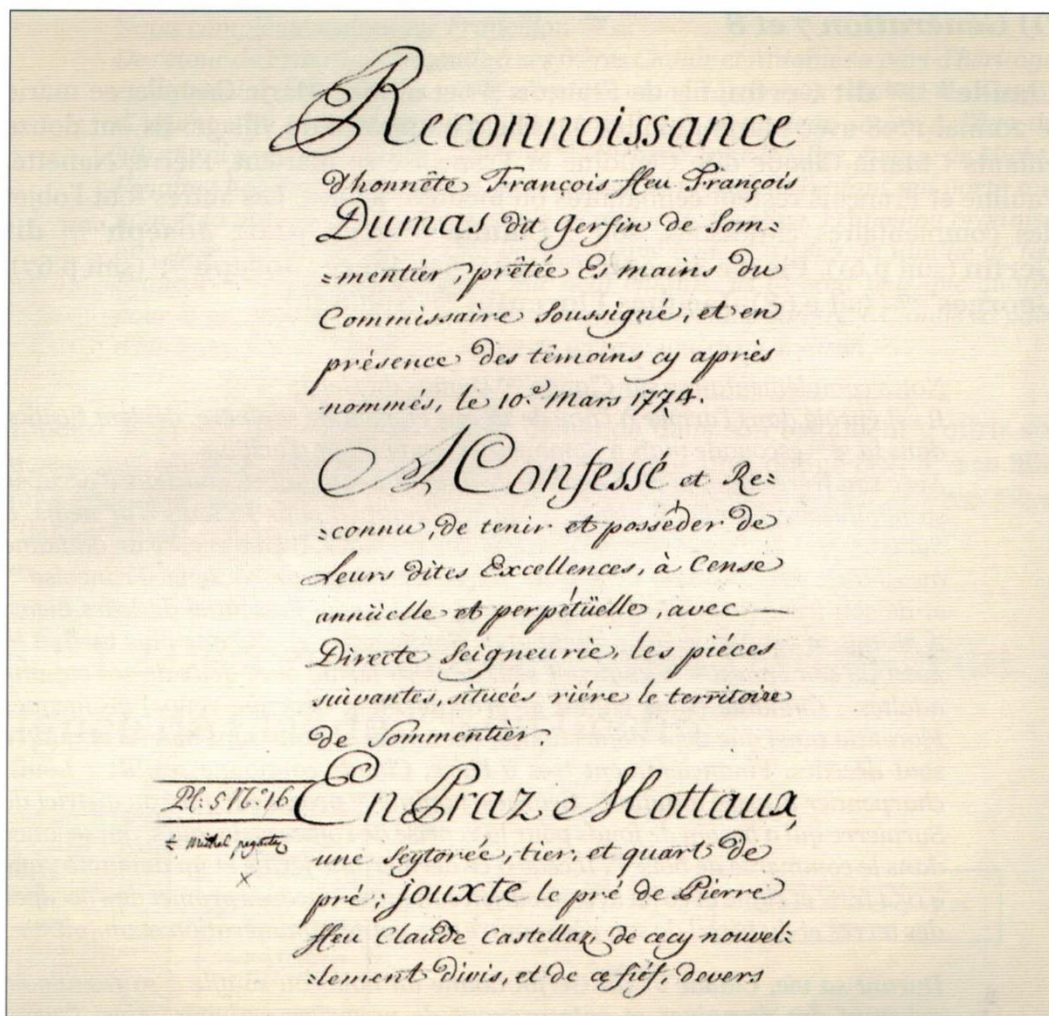 Reconnoissance
d'honnête François ffeu François
Dumas dit Gersin de Som=
=mentier, prêtée Es mains du
Commissaire Soussigné, et en
présence des têmoins cy après
nommés, le 10.e Mars 1774.
A Confessé et Re=
=connu, de tenir et posséder de
Leurs dites Excellences, à Cense
annüelle et perpétüelle, avec —
Directe Seigneurie, les piéces
suivantes, situeés riére le territoire
de Sommentier.
Pl: 5 N.o 16
En Praz Mottaux,
Michel
une Seytorée, tier, et quart de
pré; jouxte le pré de Pierre
ffeu Claude Castellaz, de cecy nouvel=
=lement divis, et de ce fiéf, devers